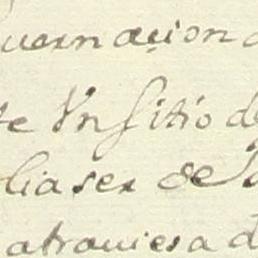 uernaçion
te Vn sitio d
lia ser de
atrauiesa d